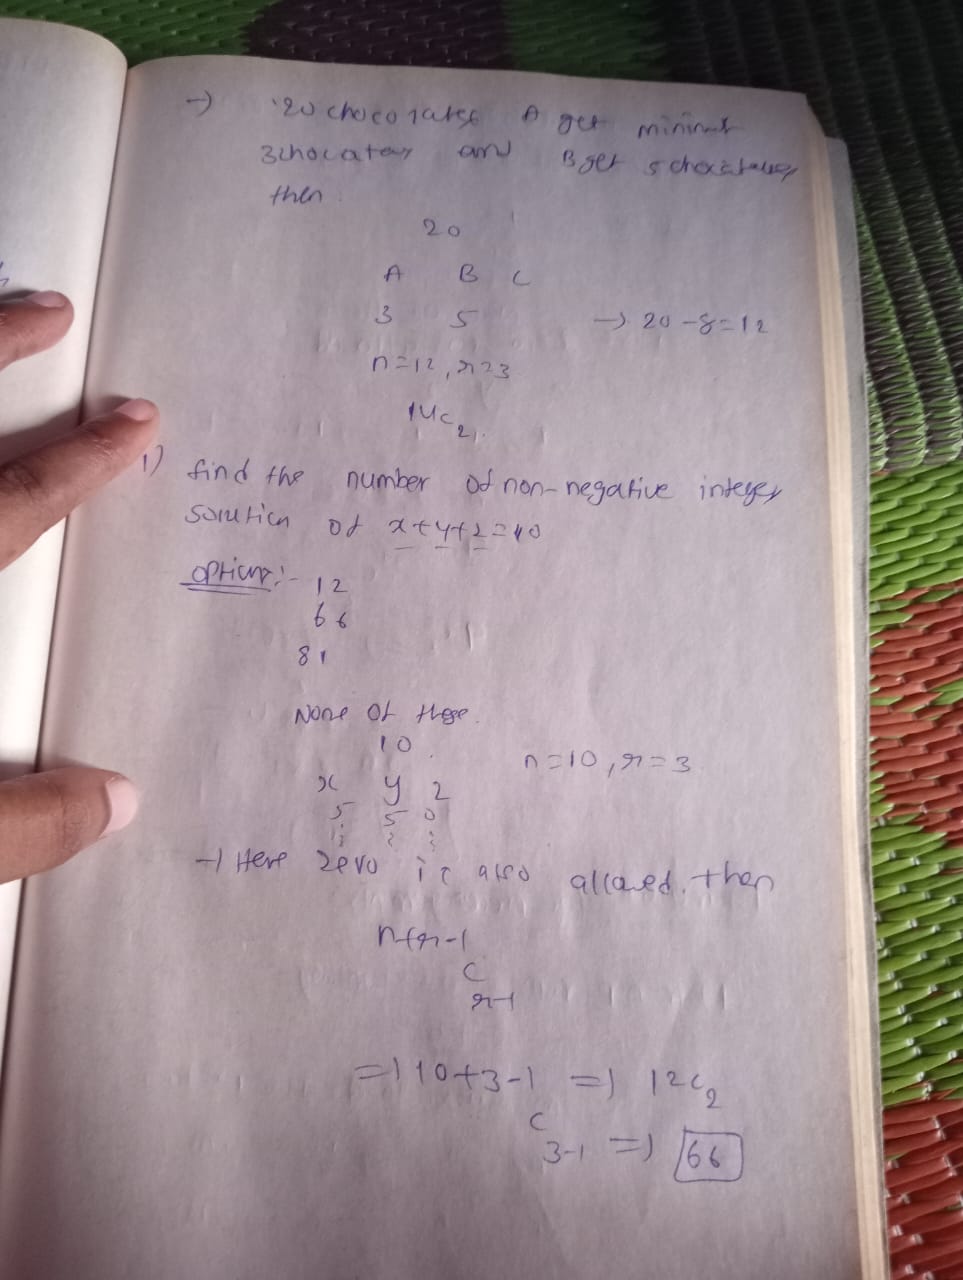 → 20 chocolates A get minimum
3chocates and B get 5 chocolates
then
20
A B C
3 5 → 20-8=12
n=12, r=3
14C2.
1) find the number of non-negative integer
solution of x+y+z=10
options:- 12
66
81
None of these.
10
x y z n=10, r=3
5 5 0
→ Here zero is also allowed. then
n+r-1
C
r-1
=) 10+3-1 =) 12C2
C
3-1 =) 66